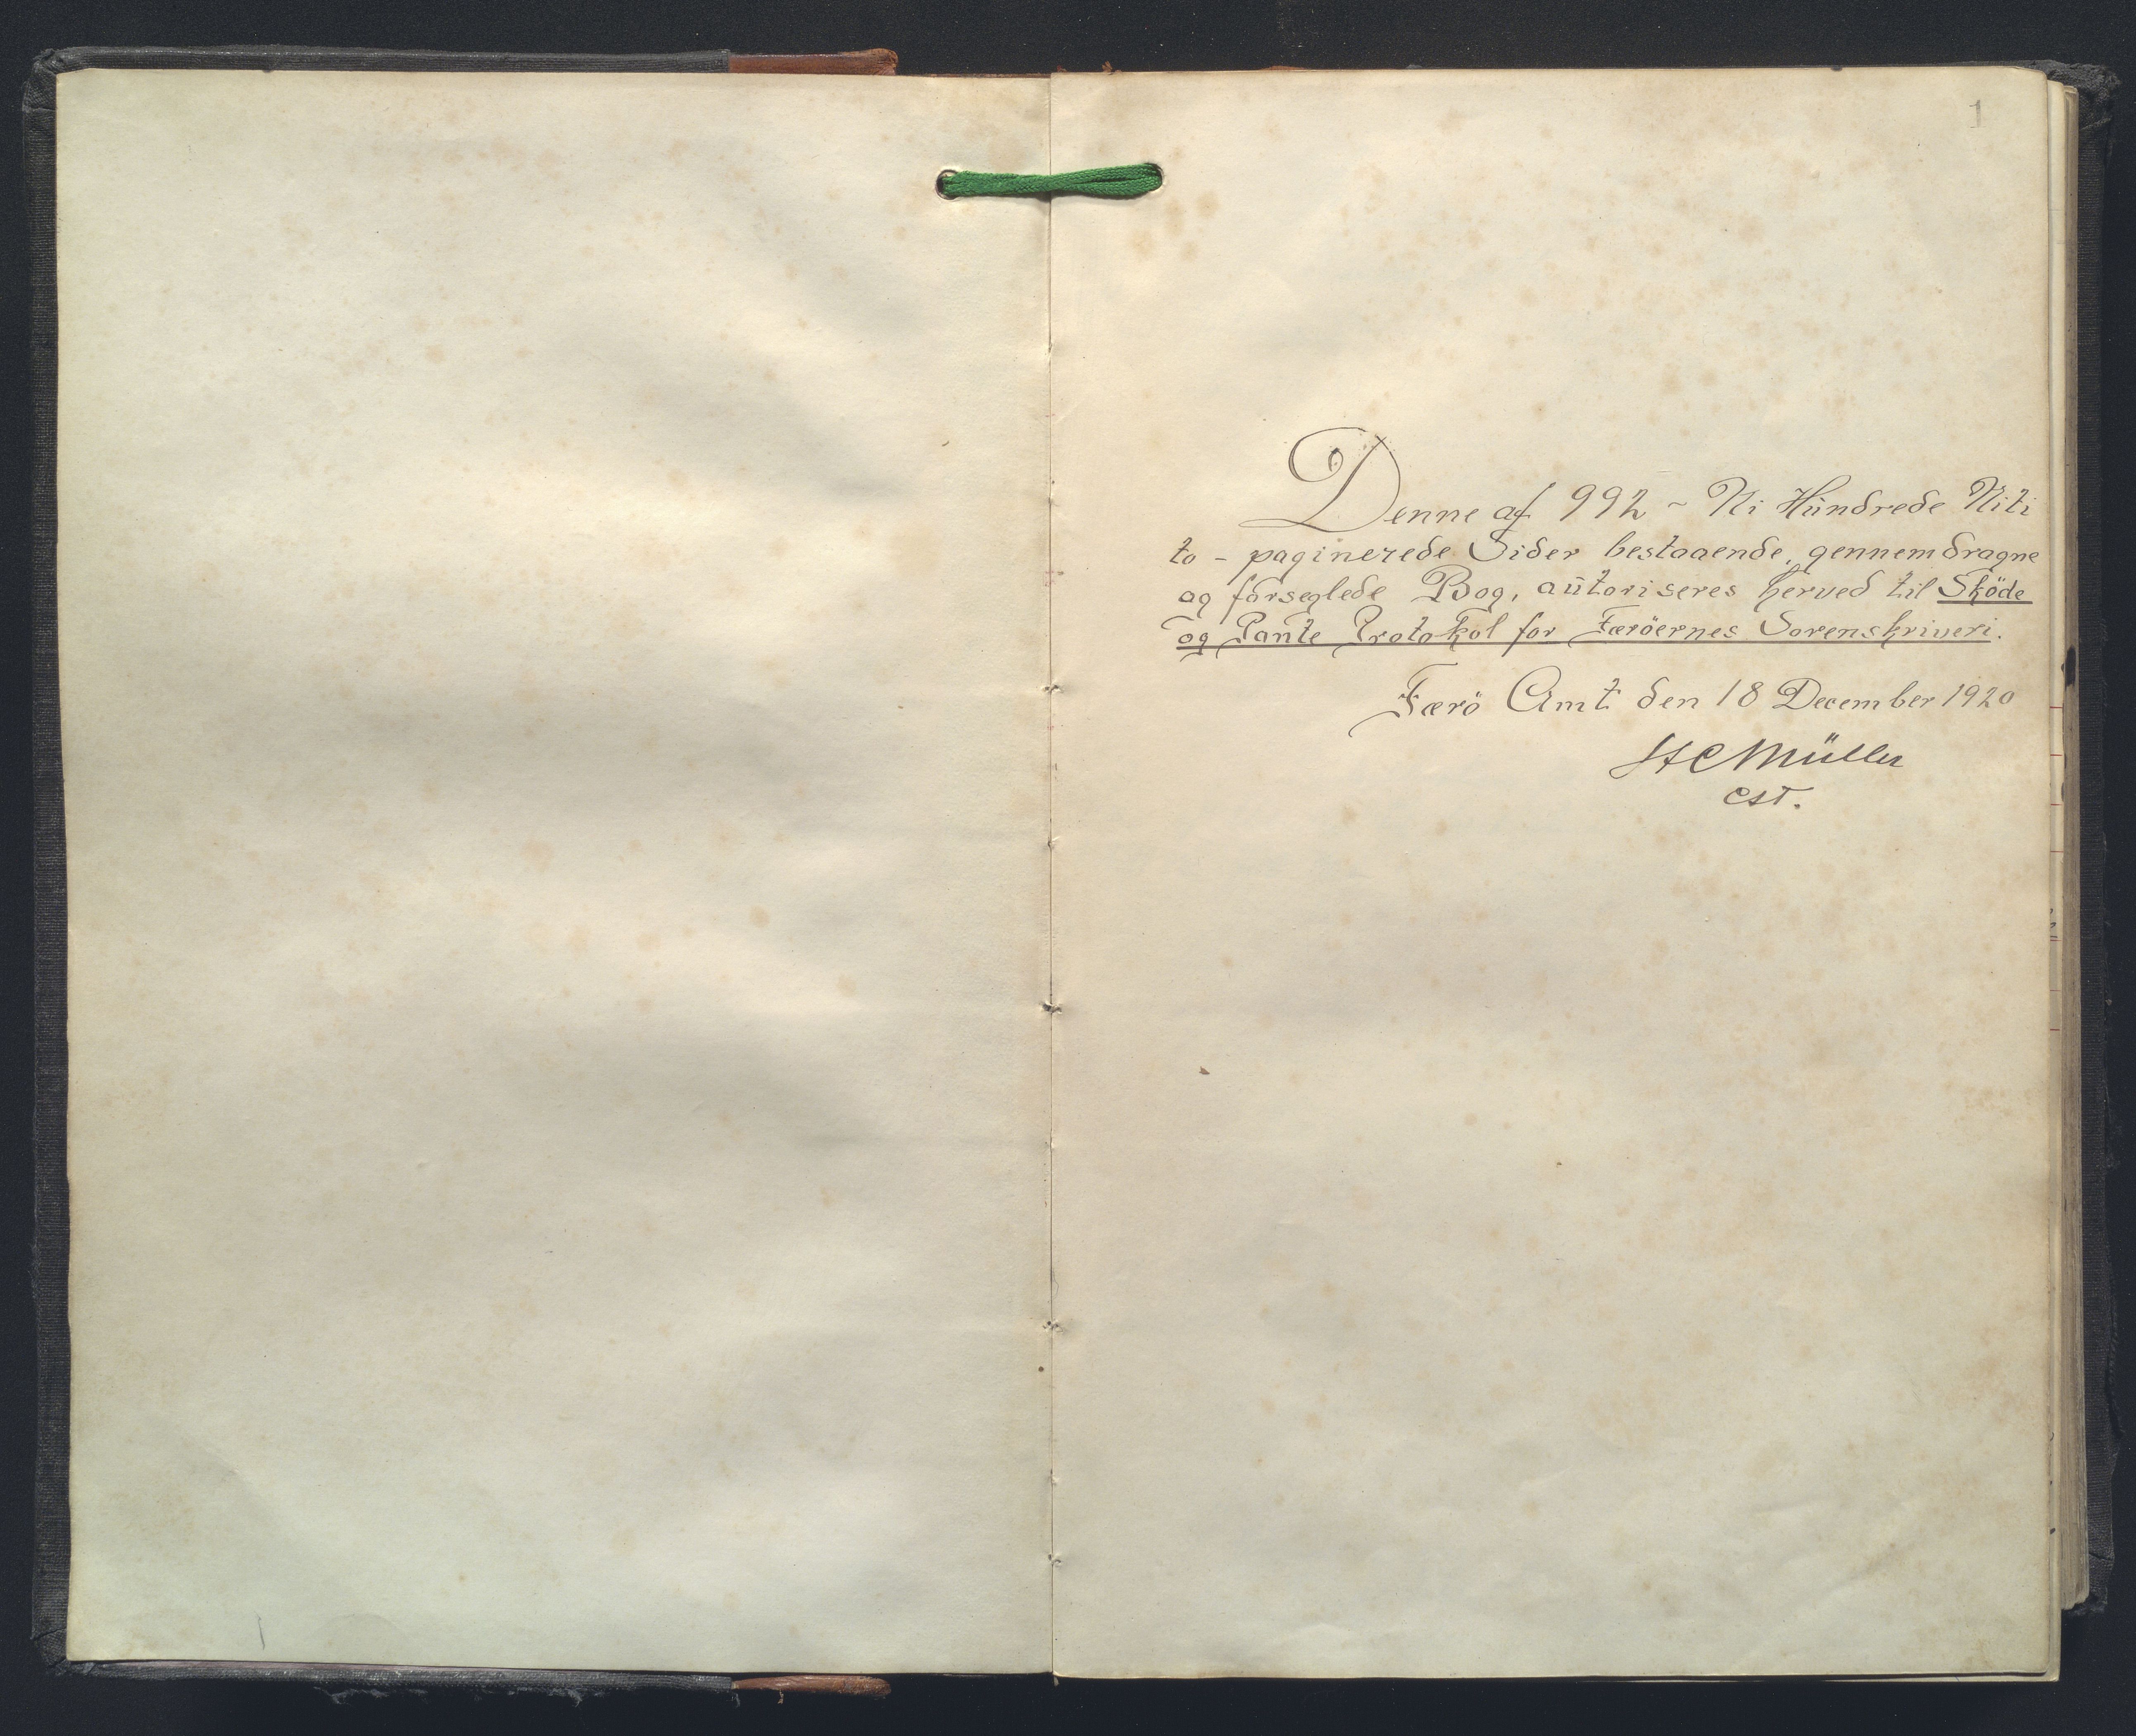 1
Denne af 992 ~ Ni Hundrede Niti
to - paginerede Sider bestaaende, gennemdragne
og forseglede Bog, autoriseres herved til Sköde
og Pante Protokol for Færöernes Sorenskriveri.
Færö Amt den 18 December 1920
HC Müller
cst.